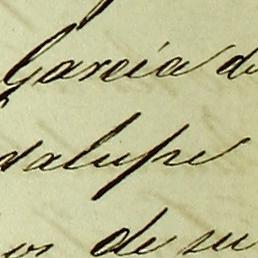 Garcia de
dalupe
os de su